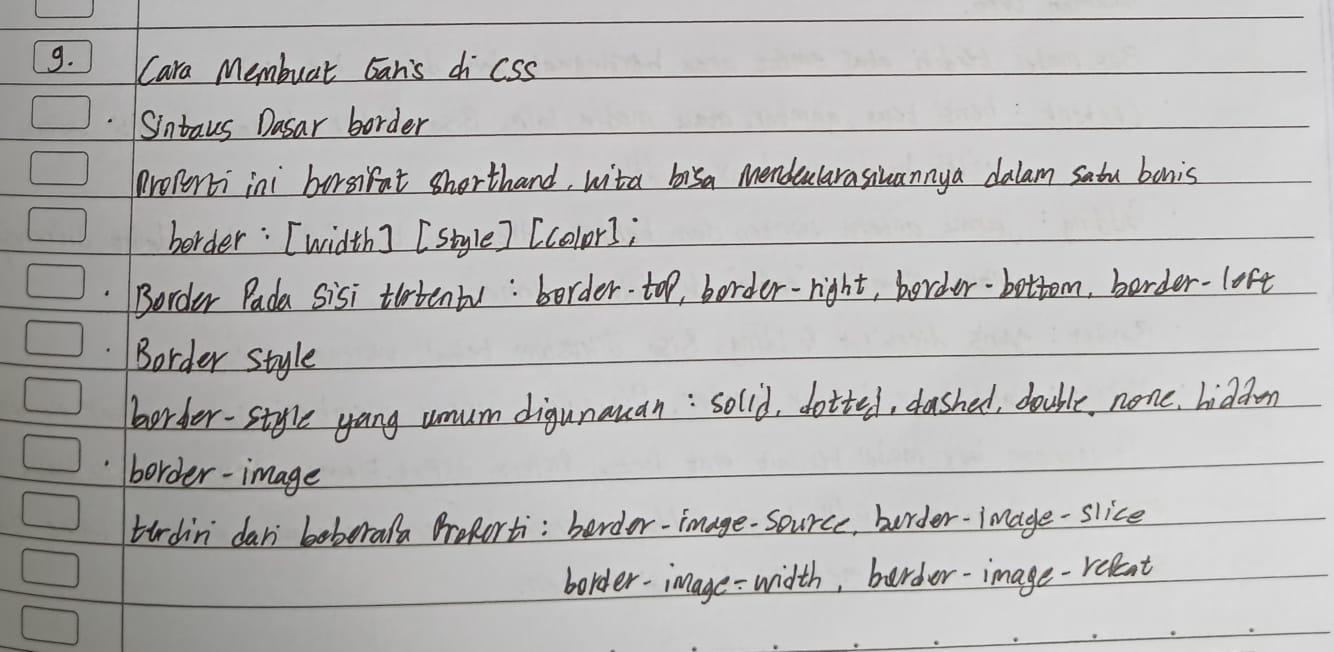 9. Cara Membuat Garis di CSS
· Sintaks Dasar border
Properti ini bersifat shorthand, kita bisa mendeklarasikannya dalam satu baris
border : [width] [style] [color];
· Border Pada sisi tertentu : border-top, border-right, border-bottom, border-left
· Border style
border-style yang umum digunakan : solid, dotted, dashed, double, none, hidden
· border-image
terdiri dari beberapa Properti : border-image-source, border-image-slice
border-image-width, border-image-repeat